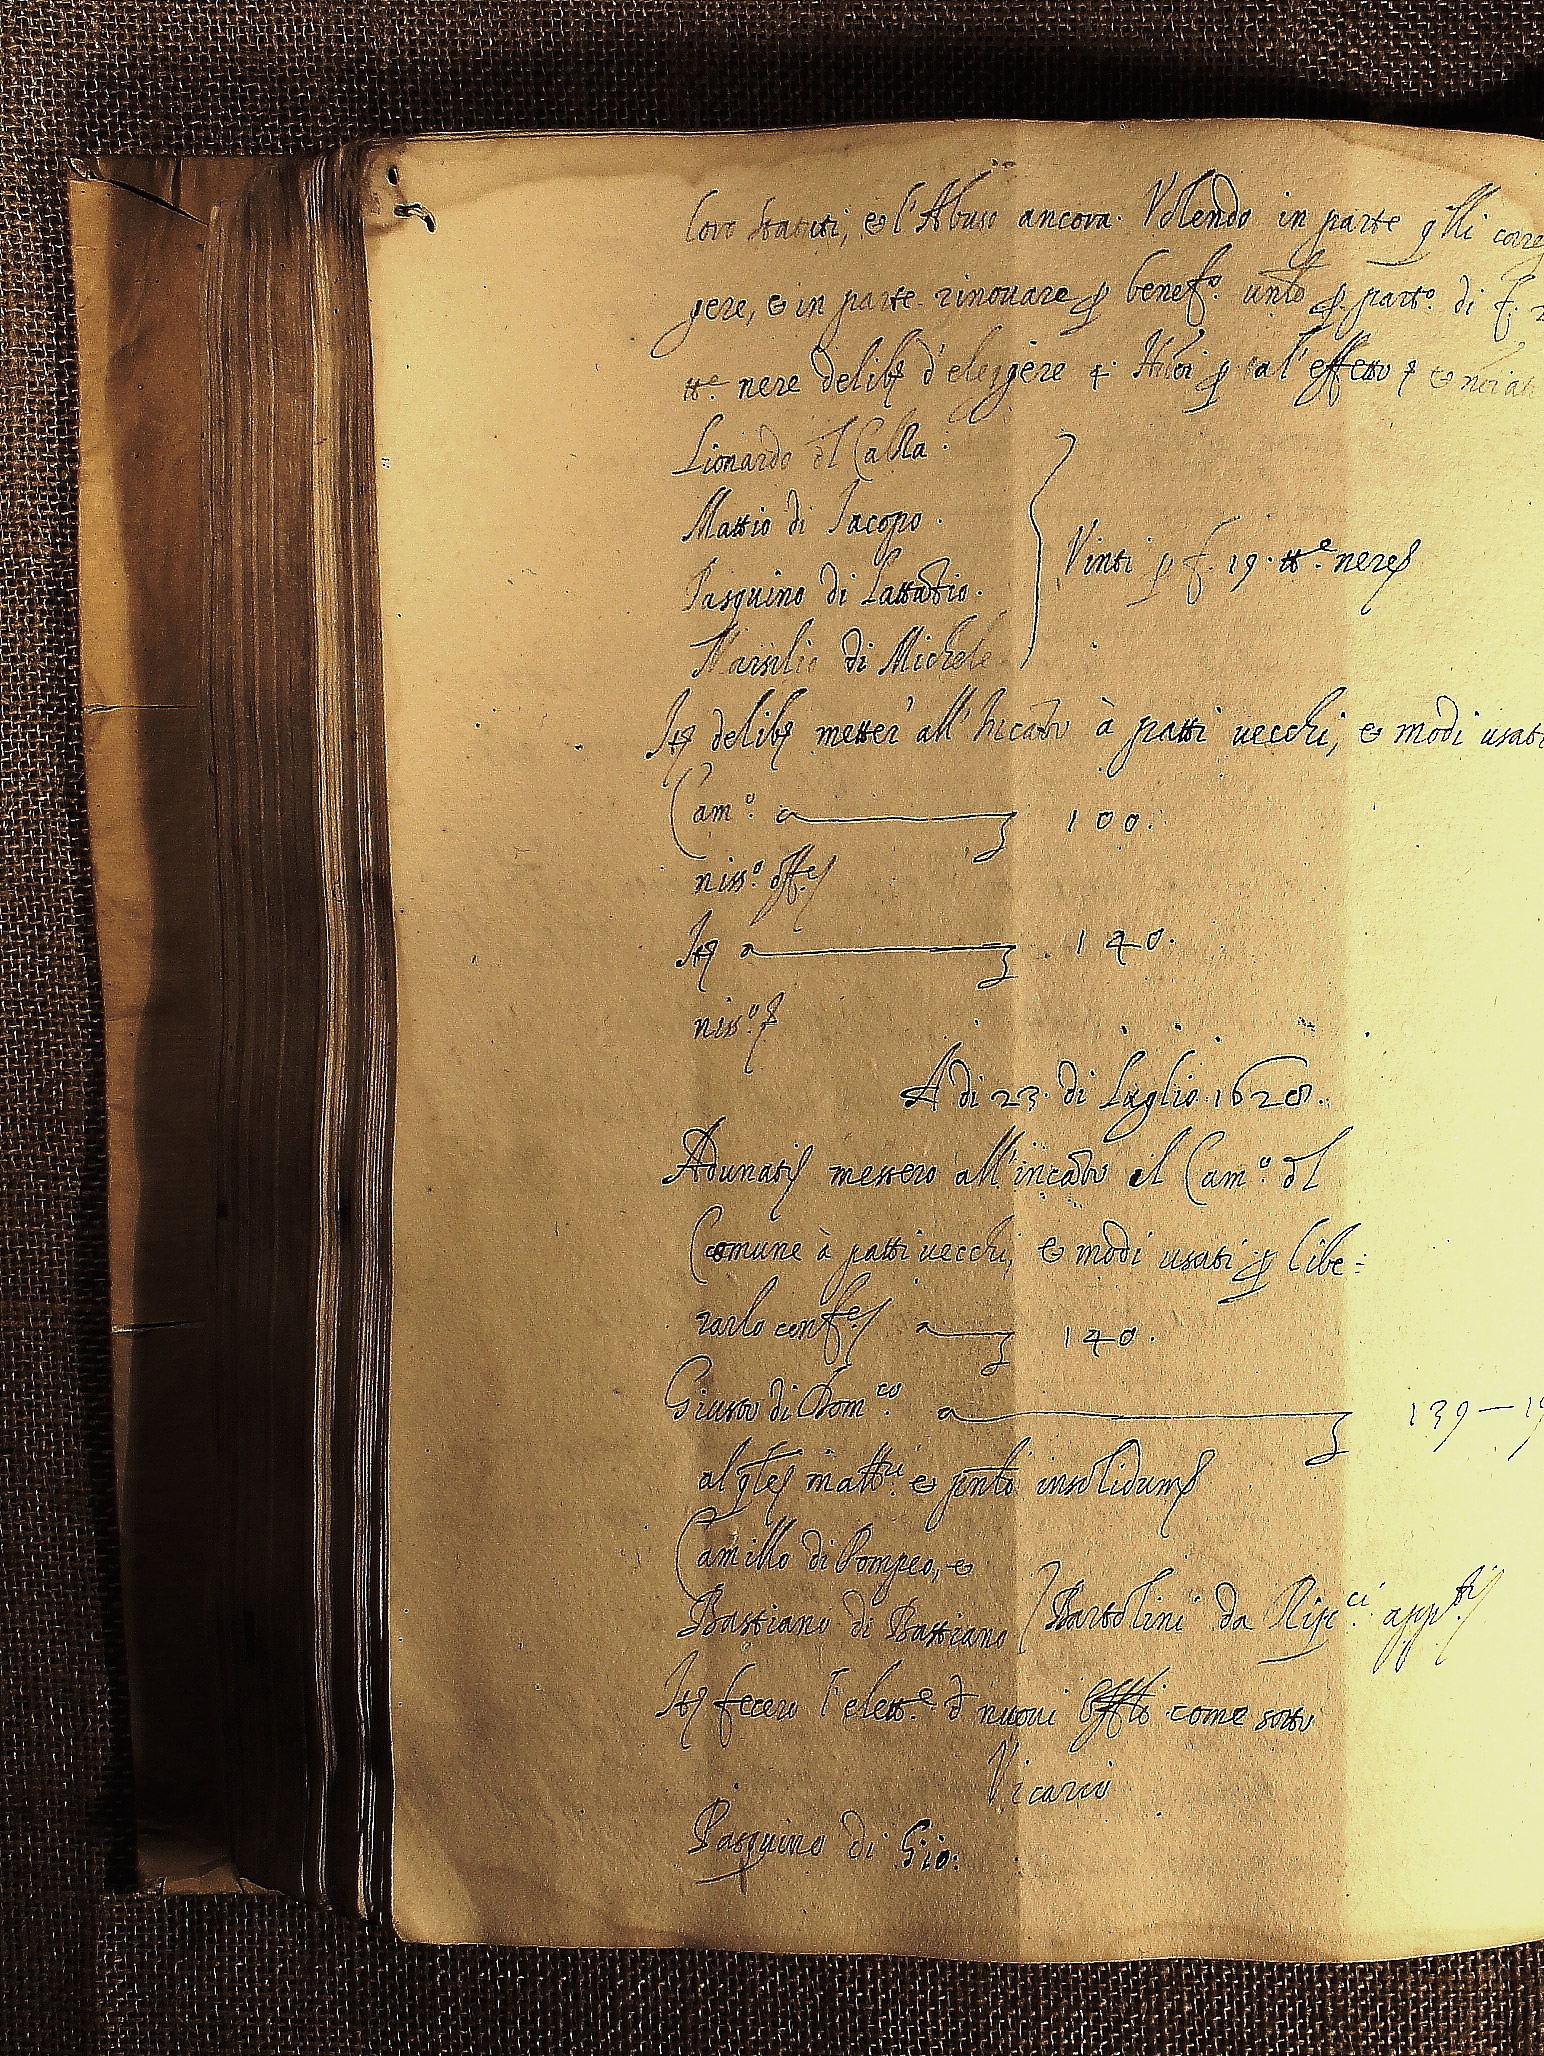 loro statuti, & l'Abuso ancora. Volendo in parte q̃lli corre
gere, & in parte rinovare p benef.º unto p part.º di f.
tt.e nere delib. d'eleggere 4 p tal'effetto &
Lionardo dl Calla.
Mattio di Jacopo.
Pasquino di Lattatio. Vinti p f. 19. tt.e nere
Marsilio di Michele
It. delib. metter all'Incato à patti vecchi, & modi usati
Cam.º a 100.
niss.º off.e
It. a 140.
niss.º
A di 23. di Luglio. 1628.
Adunati messero all'incato il Cam.º dl
Comune à patti vecchi, & modi usati p libe=
rarlo conf.e a 140.
Giusto di Dom.co a 139—19
al q̃te matt.i & pnto insolidum
Camillo di Pompeo, &
Bastiano di Bastiano Bartolini da app.ti
It. fecero l'elett.e d nuovi Offli come sotto
Vicario
Pasquino di Gio: